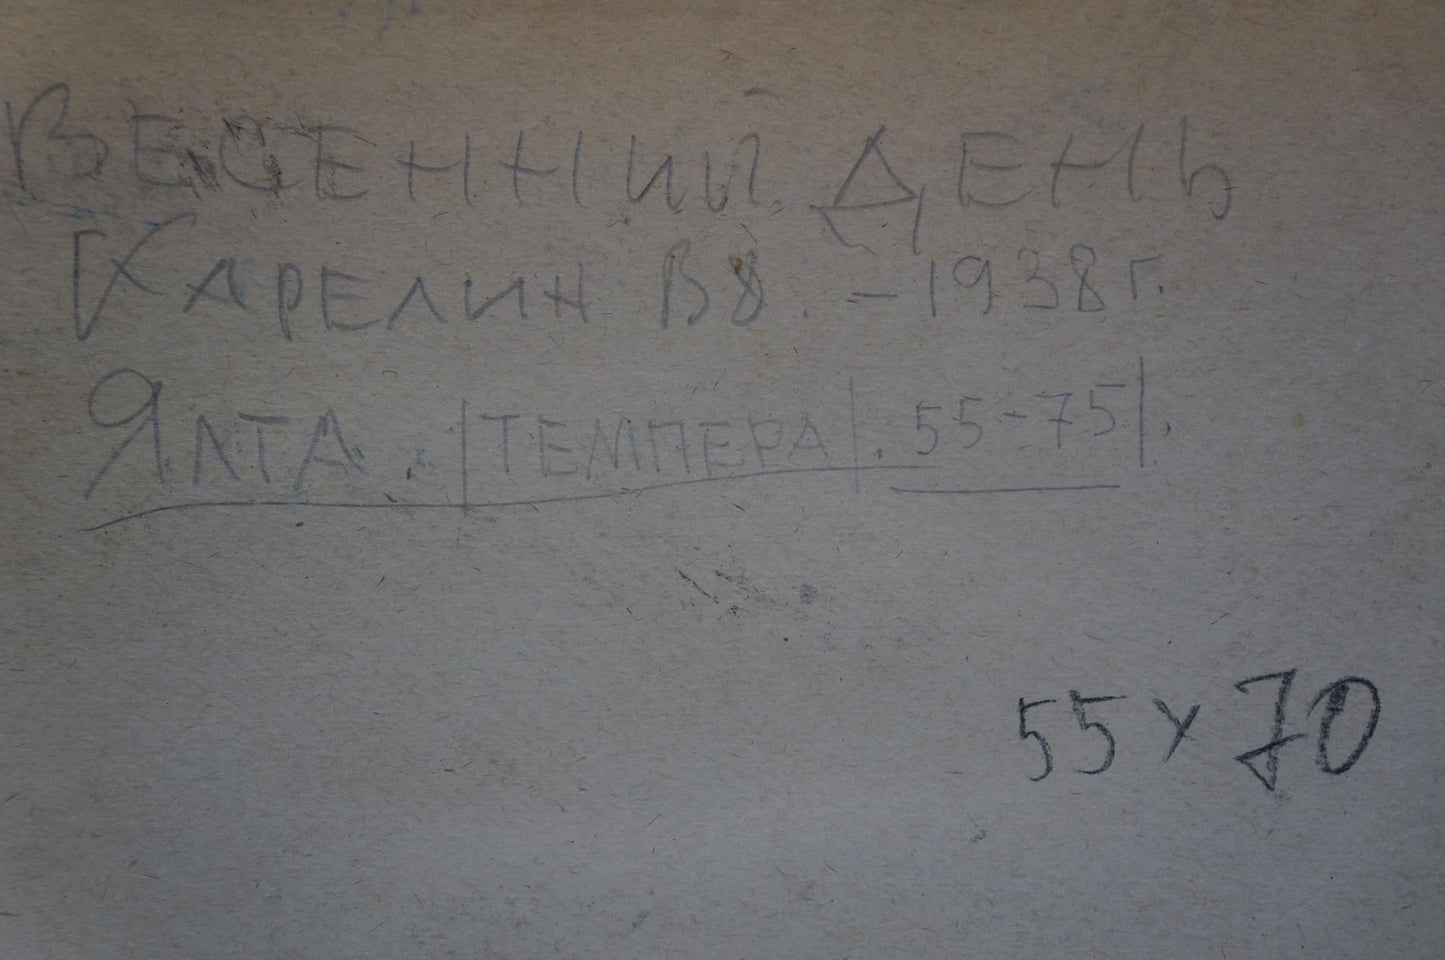 ВЕСЕННИЙ ДЕНЬ
КАРЕЛИН В. – 1938 г.
ЯЛТА. |ТЕМПЕРА|. 55-75|.
55 х 70